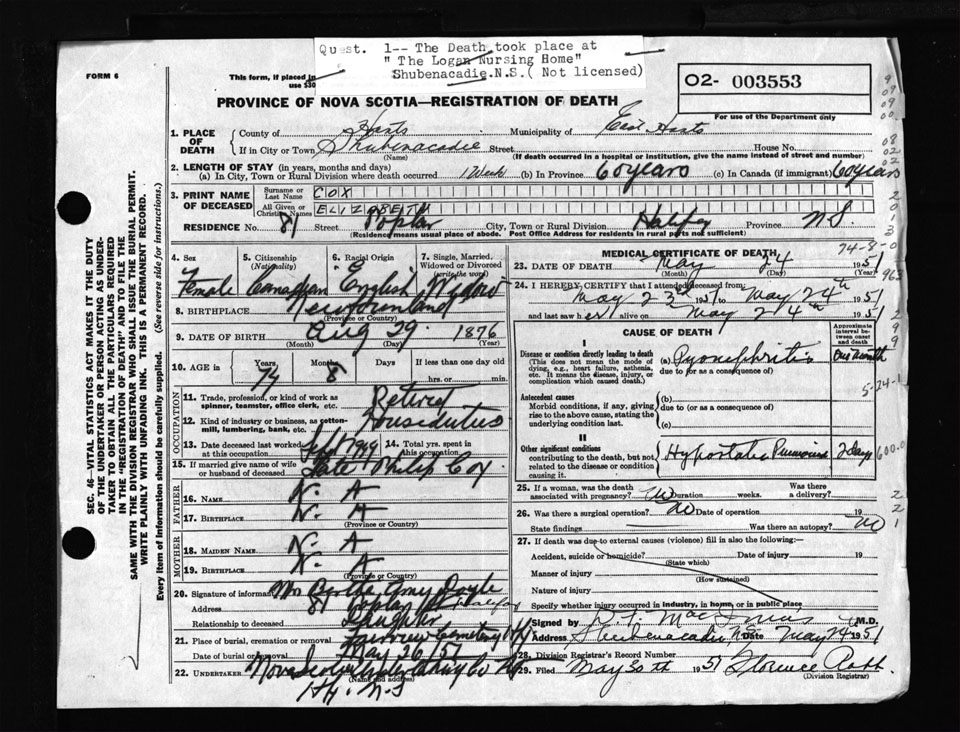 Quest. 1-- The Death took place at
" The Logan Nursing Home"
Shubenacadie.N.S.( Not licensed)
FORM 6
This form, if placed in
use $30
O2- 003553
For use of the Department only
PROVINCE OF NOVA SCOTIA—REGISTRATION OF DEATH
1. PLACE OF DEATH County of Hants Municipality of East Hants
If in City or Town Shubenacadie Street House No.
(Name) (If death occurred in a hospital or institution, give the name instead of street and number)
2. LENGTH OF STAY (in years, months and days)
(a) In City, Town or Rural Division where death occurred 1 Week (b) In Province 60 years (c) In Canada (if immigrant) 60 years
3. PRINT NAME OF DECEASED
Surname or Last Name COX
All Given or Christian Names ELIZABETH
RESIDENCE No. 81 Street Poplar City, Town or Rural Division Halifax Province N S
(Residence means usual place of abode. Post Office Address for residents in rural parts not sufficient)
4. Sex 5. Citizenship (Nationality) 6. Racial Origin 7. Single, Married, Widowed or Divorced (write the word)
Female Canadian English Widow
8. BIRTHPLACE Newfoundland
(Province or Country)
9. DATE OF BIRTH Aug 29 1876
(Month) (Day) (Year)
10. AGE in Years 74 Months 8 Days If less than one day old
hrs. or min.
OCCUPATION
11. Trade, profession, or kind of work as spinner, teamster, office clerk, etc. Retired
12. Kind of industry or business, as cotton-mill, lumbering, bank, etc. Houseduties
13. Date deceased last worked at this occupation Sept 1949 14. Total yrs. spent in this occupation
15. If married give name of wife or husband of deceased Late Philip Cox
FATHER
16. NAME N. A
17. BIRTHPLACE N. A
(Province or Country)
MOTHER
18. MAIDEN NAME N. A
19. BIRTHPLACE N. A
(Province or Country)
20. Signature of informant Mrs Amy Doyle
Address 81 Poplar St Halifax
Relationship to deceased Daughter
21. Place of burial, cremation or removal Fairview Cemetery Hfx
Date of burial or removal May 26/51
22. UNDERTAKER Nova Scotia Undertaking Co Hfx
(Name and address)
Hfx. N-S
MEDICAL CERTIFICATE OF DEATH
74-8-0
23. DATE OF DEATH May 24 1951
(Month) (Day) (Year)
24. I HEREBY CERTIFY that I attended deceased from
May 23rd 1951 to May 24th 1951
and last saw her alive on May 24th 1951
CAUSE OF DEATH
Approximate interval between onset and death
I
Disease or condition directly leading to death (a) Pyonephritis One month
(This does not mean the mode of dying, e.g., heart failure, asthenia, etc. It means the disease, injury, or complication which caused death.)
due to (or as a consequence of)
Antecedent causes (b)
Morbid conditions, if any, giving rise to the above cause, stating the underlying condition last.
due to (or as a consequence of)
(c)
5-24-1
II
Other significant conditions contributing to the death, but not related to the disease or condition causing it. Hypostatic Pneumonia 2 days
600.0
25. If a woman, was the death associated with pregnancy? No Duration weeks. Was there a delivery?
26. Was there a surgical operation? No Date of operation 19
State findings Was there an autopsy? No
27. If death was due to external causes (violence) fill in also the following:—
Accident, suicide or homicide? Date of injury 19
(State which)
Manner of injury
(How sustained)
Nature of injury
Specify whether injury occurred in industry, in home, or in public place
Signed by MacInnis M.D.
Address Shubenacadie NS Date May 24 1951
28. Division Registrar's Record Number
29. Filed May 30th 1951 Florence
(Division Registrar)
SEC. 46—VITAL STATISTICS ACT MAKES IT THE DUTY
OF THE UNDERTAKER OR PERSON ACTING AS UNDER-
TAKER TO OBTAIN ALL THE PARTICULARS REQUIRED
IN THE "REGISTRATION OF DEATH" AND TO FILE THE
SAME WITH THE DIVISION REGISTRAR WHO SHALL ISSUE THE BURIAL PERMIT.
WRITE PLAINLY WITH UNFADING INK. THIS IS A PERMANENT RECORD.
Every item of information should be carefully supplied. (See reverse side for instructions.)